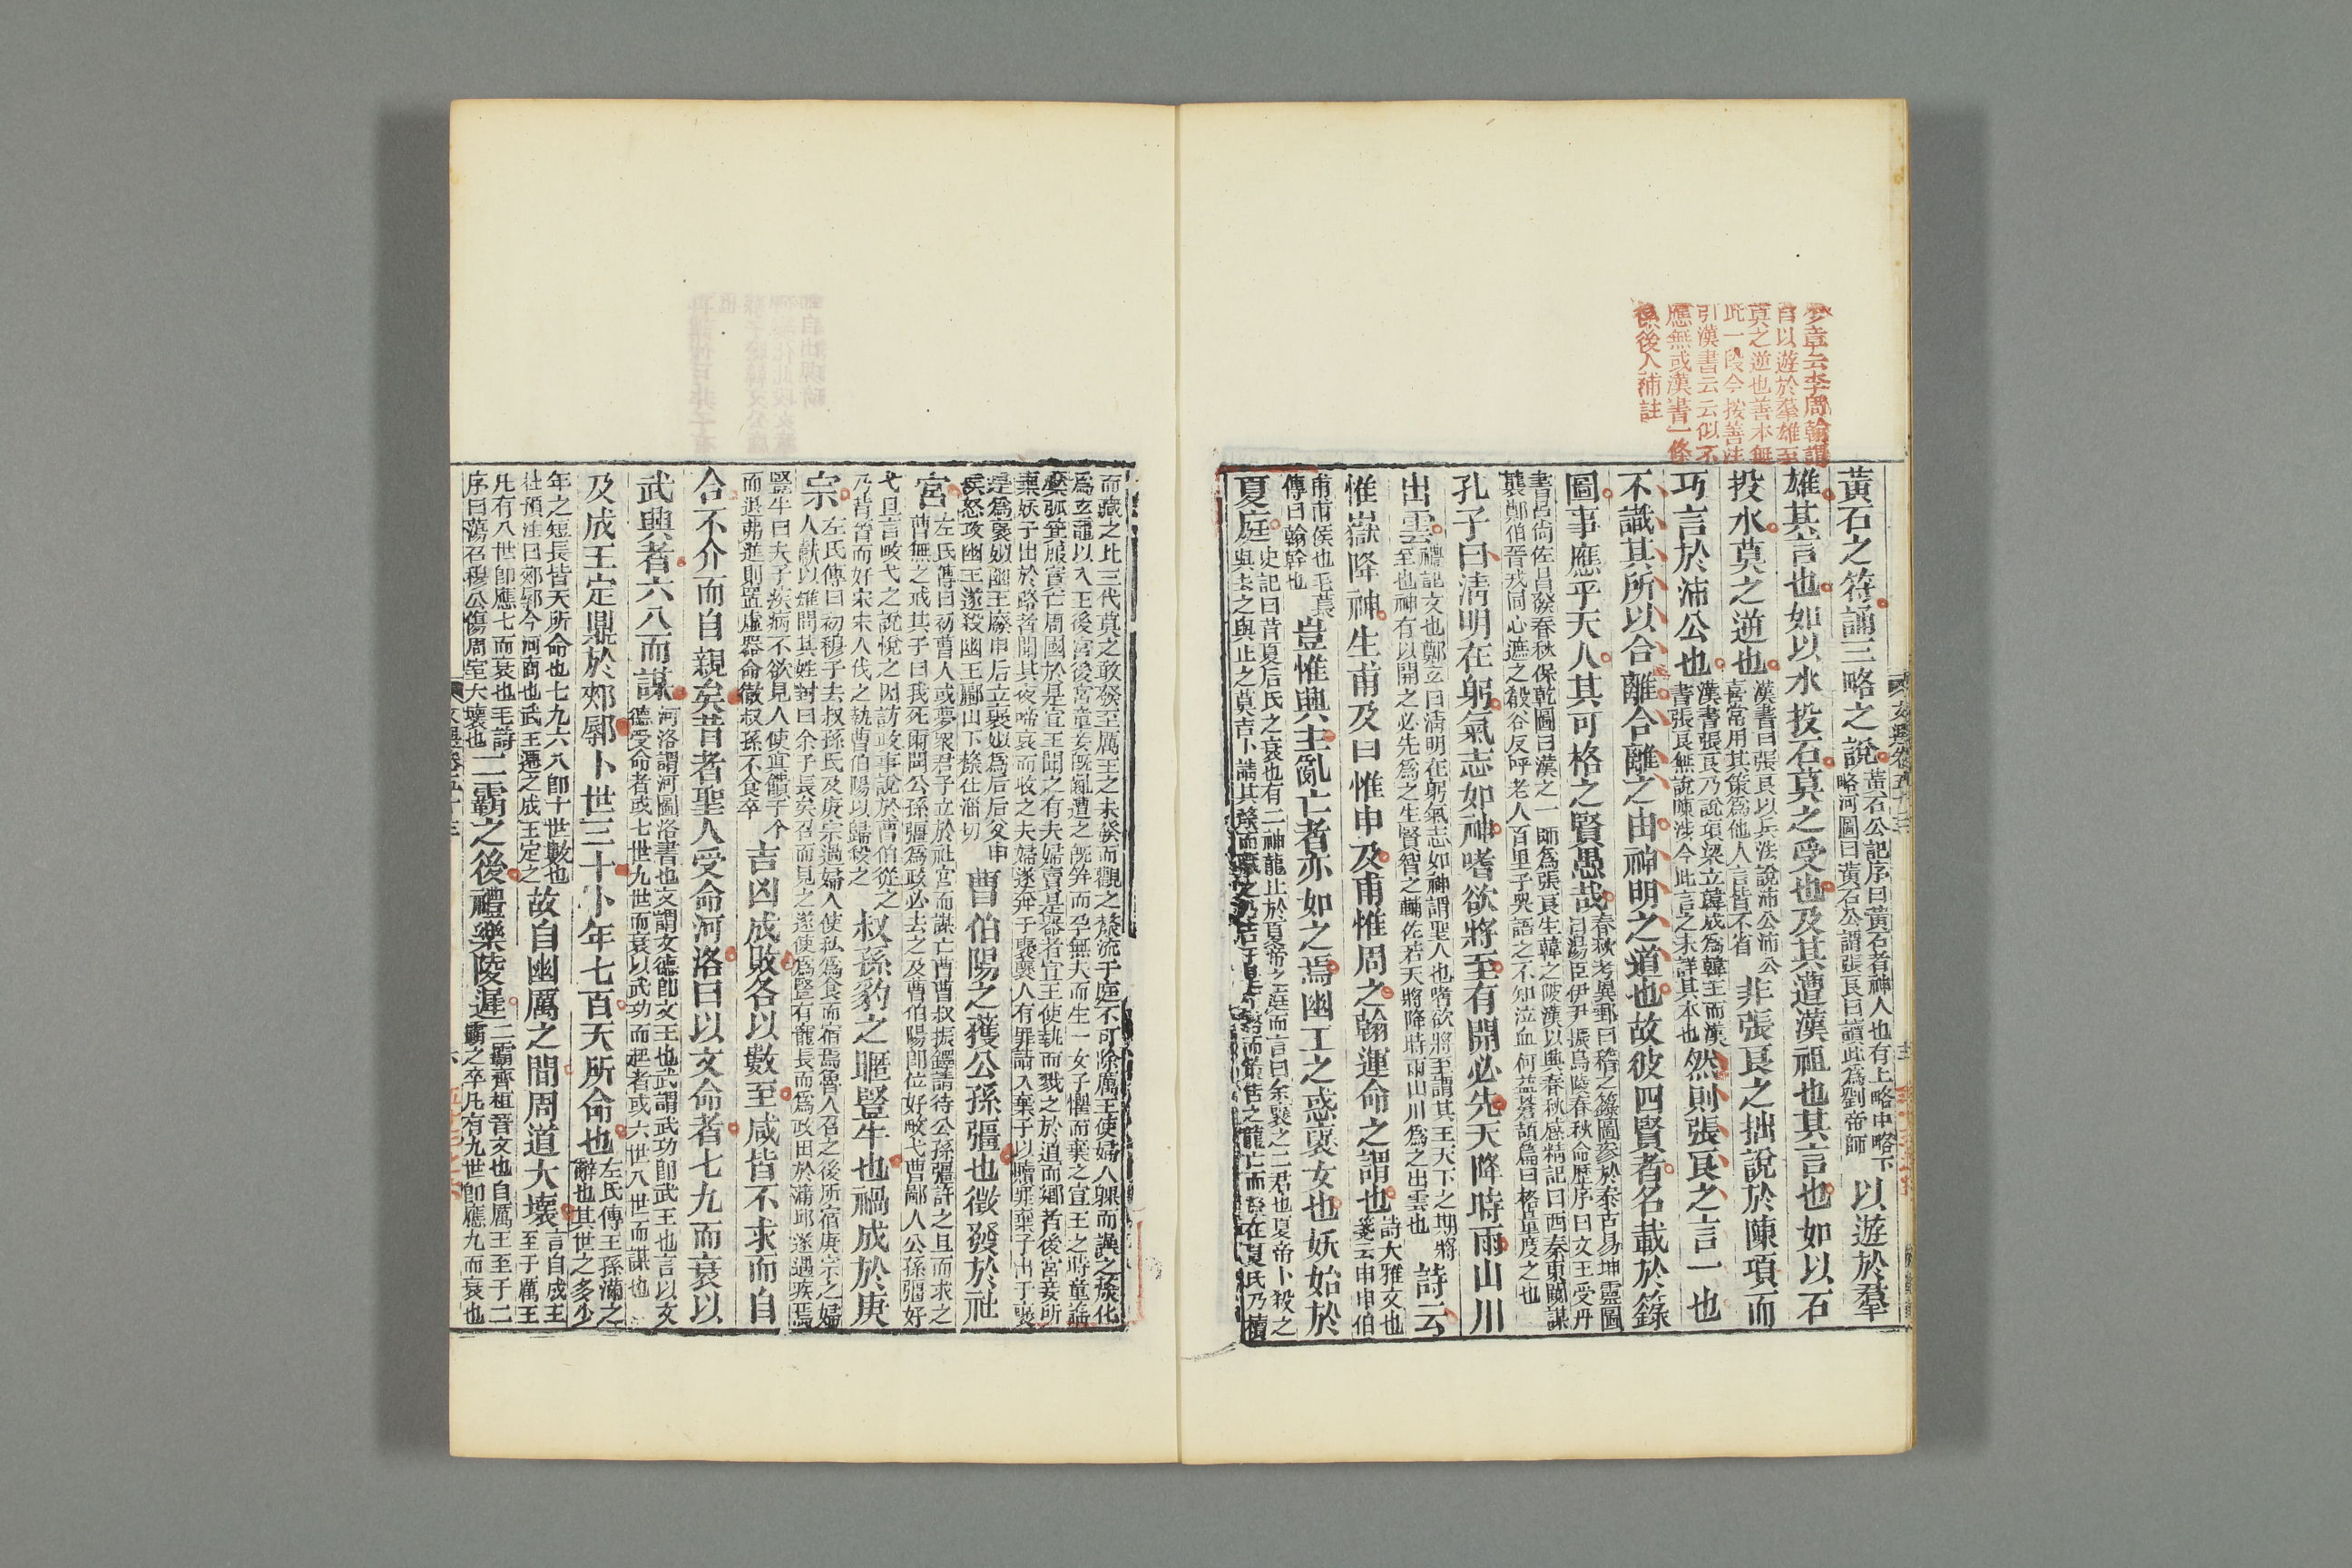 黃石之符誦三略之說黃石公記序曰黃石者神人也有上略中略下略河圖曰黃石公謂張良曰讀此為劉帝師以遊於羣
雄其言也如以水投石莫之受也及其遭漢祖也其言也如以石
投水莫之逆也漢書曰張良以兵法說沛公沛公喜常用其策為他人言皆不省非張良之拙說於陳項而
巧言於沛公也漢書張良乃說項梁立韓成為韓王而漢書張良無說陳涉今此言之未詳其本也然則張良之言一也
不識其所以合離合離之由神明之道也故彼四賢者名載於籙
圖事應乎天人其可格之賢愚哉春秋考異郵曰稽之籙圖參於泰古易坤靈圖曰湯臣伊尹振鳥陵春秋命歷序曰文王受丹
書呂尚佐昌發春秋保乾圖曰漢之一師為張良生韓之陂漢以興春秋感精記曰西秦東闚謀襲鄭伯晉戎同心遮之殽谷反呼老人百里子哭語之不知泣血何益蒼頡篇曰格量度之也
孔子曰清明在躬氣志如神嗜欲將至有開必先天降時雨山川
出雲禮記文也鄭玄曰清明在躬氣志如神謂聖人也嗜欲將至謂其王天下之期將至也神有以開之必先為之生賢智之輔佐若天將降時雨山川為之出雲也詩云
惟嶽降神生甫及申惟申及甫惟周之翰運命之謂也詩大雅文也箋云申申伯
甫甫侯也毛萇傳曰翰幹也豈惟興主亂亡者亦如之焉幽王之惑褒女也妖始於
夏庭史記曰昔夏后氏之衰也有二神龍止於夏帝之庭而言曰余褒之二君也夏帝卜殺之與去之與止之莫吉卜請其漦而藏之乃吉於是幣而策告之龍亡而漦在夏氏乃櫝
而藏之比三代莫之敢發至厲王之末發而觀之漦流于庭不可除厲王使婦人躶而譟之漦化為玄黿以入王後宮後宮童妾既齓遭之既笄而孕無夫而生一女子懼而棄之宣王之時童謠
曰檿弧箕服實亡周國於是宣王聞之有夫婦賣是器者宣王使執而戮之於道而鄉者後宮妾所棄妖子出於路者聞其夜啼哀而收之夫婦遂奔于褒褒人有罪請入棄子以贖罪棄子出于褒
是為褒姒幽王廢申后立褒姒為后后父申侯怒攻幽王遂殺幽王驪山下漦仕淄切曹伯陽之獲公孫彊也徵發於社
宮左氏傳曰初曹人或夢眾君子立於社宮而謀亡曹曹叔振鐸請待公孫彊許之旦而求之曹無之戒其子曰我死爾聞公孫彊為政必去之及曹伯陽即位好畋弋曹鄙人公孫彊好
弋且言畋弋之說悅之因訪政事說於曹伯從之乃背晉而好宋宋人伐之執曹伯陽以歸殺之叔孫豹之暱豎牛也禍成於庚
宗左氏傳曰初穆子去叔孫氏及庚宗遇婦人使私為食而宿焉魯人召之後所宿庚宗之婦人獻以雉問其姓對曰余子長矣召而見之遂使為豎有寵長而為政田於蒲邱遂遇疾焉
豎牛曰夫子疾病不欲見人使寘饋于个而退弗進則置虛器命徹叔孫不食卒吉凶成敗各以數至咸皆不求而自
合不介而自親矣昔者聖人受命河洛曰以文命者七九而衰以
武興者六八而謀河洛謂河圖洛書也文謂文德即文王也武謂武功即武王也言以文德受命者或七世九世而衰以武功而起者或六世八世而謀也
及成王定鼎於郟鄏卜世三十卜年七百天所命也左氏傳王孫滿之辭也其世之多少
年之短長皆天所命也七九六八即十世數也杜預注曰郟鄏今河南也武王遷之成王定之故自幽厲之間周道大壞言自成王至于厲王
凡有八世即應七而衰也毛詩序曰蕩召穆公傷周室大壞也二霸之後禮樂陵遲二霸齊桓晉文也自厲王至于二霸之卒凡有九世即應九而衰也
少章云李周翰謂
自以遊於羣雄至
莫之逆也善本無
此一段今按善注
引漢書云云似不
應無或漢書一條
俱後人補註